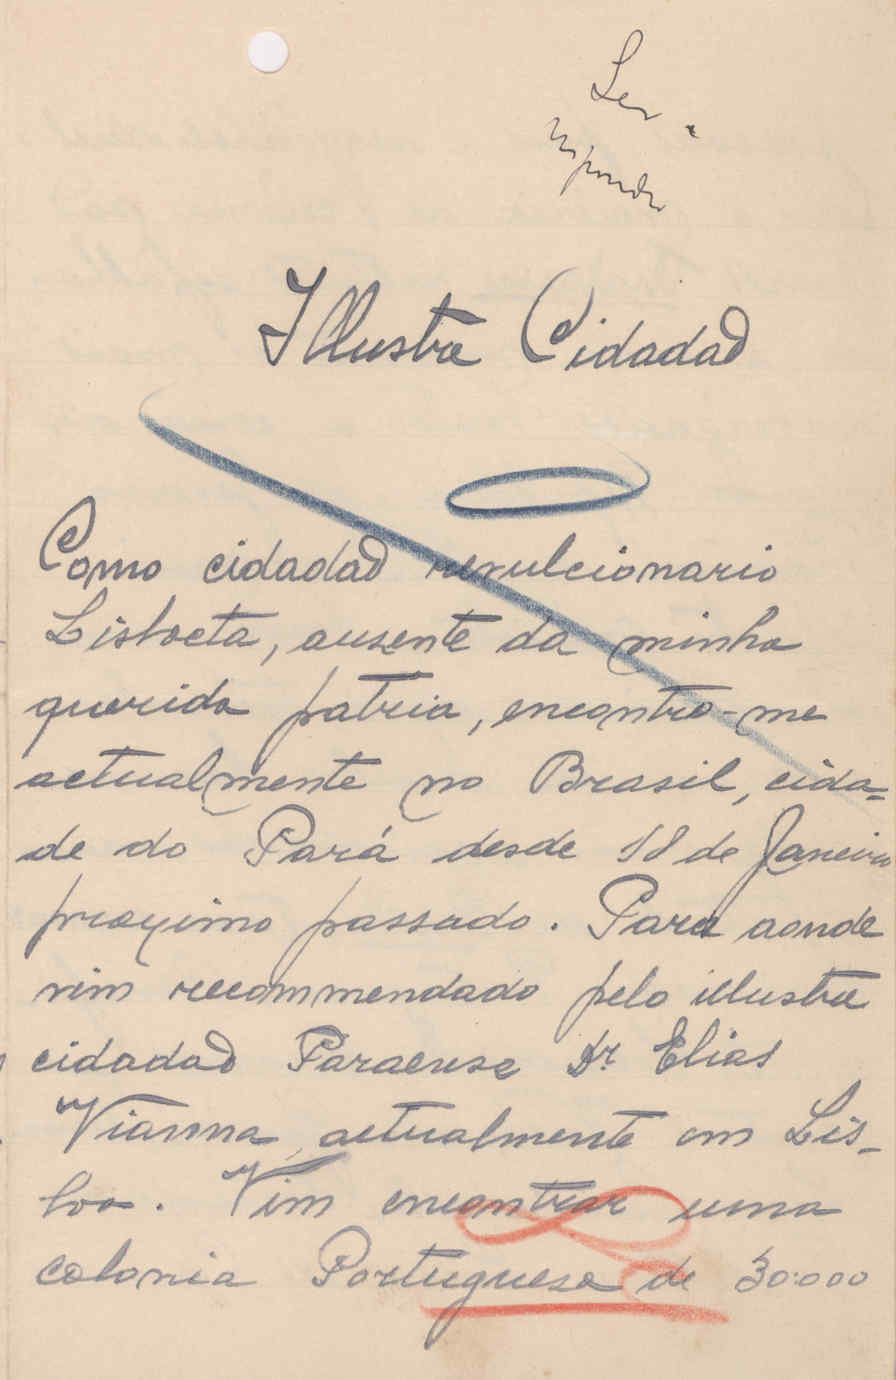 Ler e
responder
Illustre Cidadaõ
Como cidadaõ revulcionario
Lisboeta, ausente da minha
querida patria, encontro-me
actualmente no Brasil, cida-
de do Pará desde 18 de Janeiro
proximo passado. Para aonde
vim recommendado pelo illustre
cidadaõ Paraense Dr Elias
Vianna, actualmente em Lis-
boa. Vim encontrar uma
colonia Portuguesa de 30.000